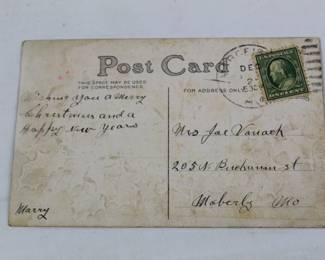 Post Card
THIS SPACE MAY BE USED
FOR CORRESPONDENCE.
FOR ADDRESS ONLY
DEC
2
Wishing you a Merry
Christmas and a
Happy New Years
Harry
Mrs Joe
205 N Buchanan st
Moberly Mo
ONE CENT